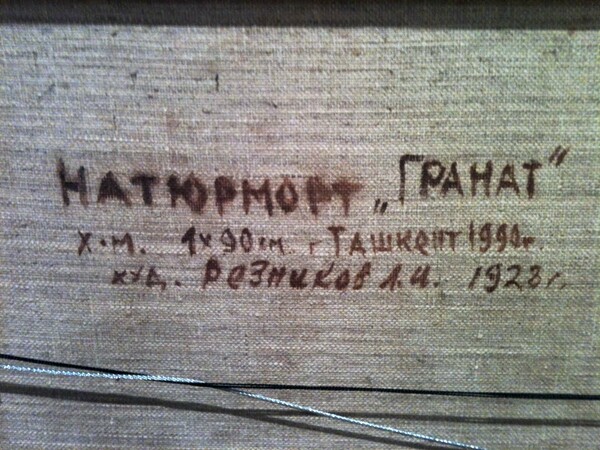 НАТЮРМОРТ „ГРАНАТ"
х.м. 1х90см г Ташкент 1990г.
худ. Резников Л.И. 1928г.